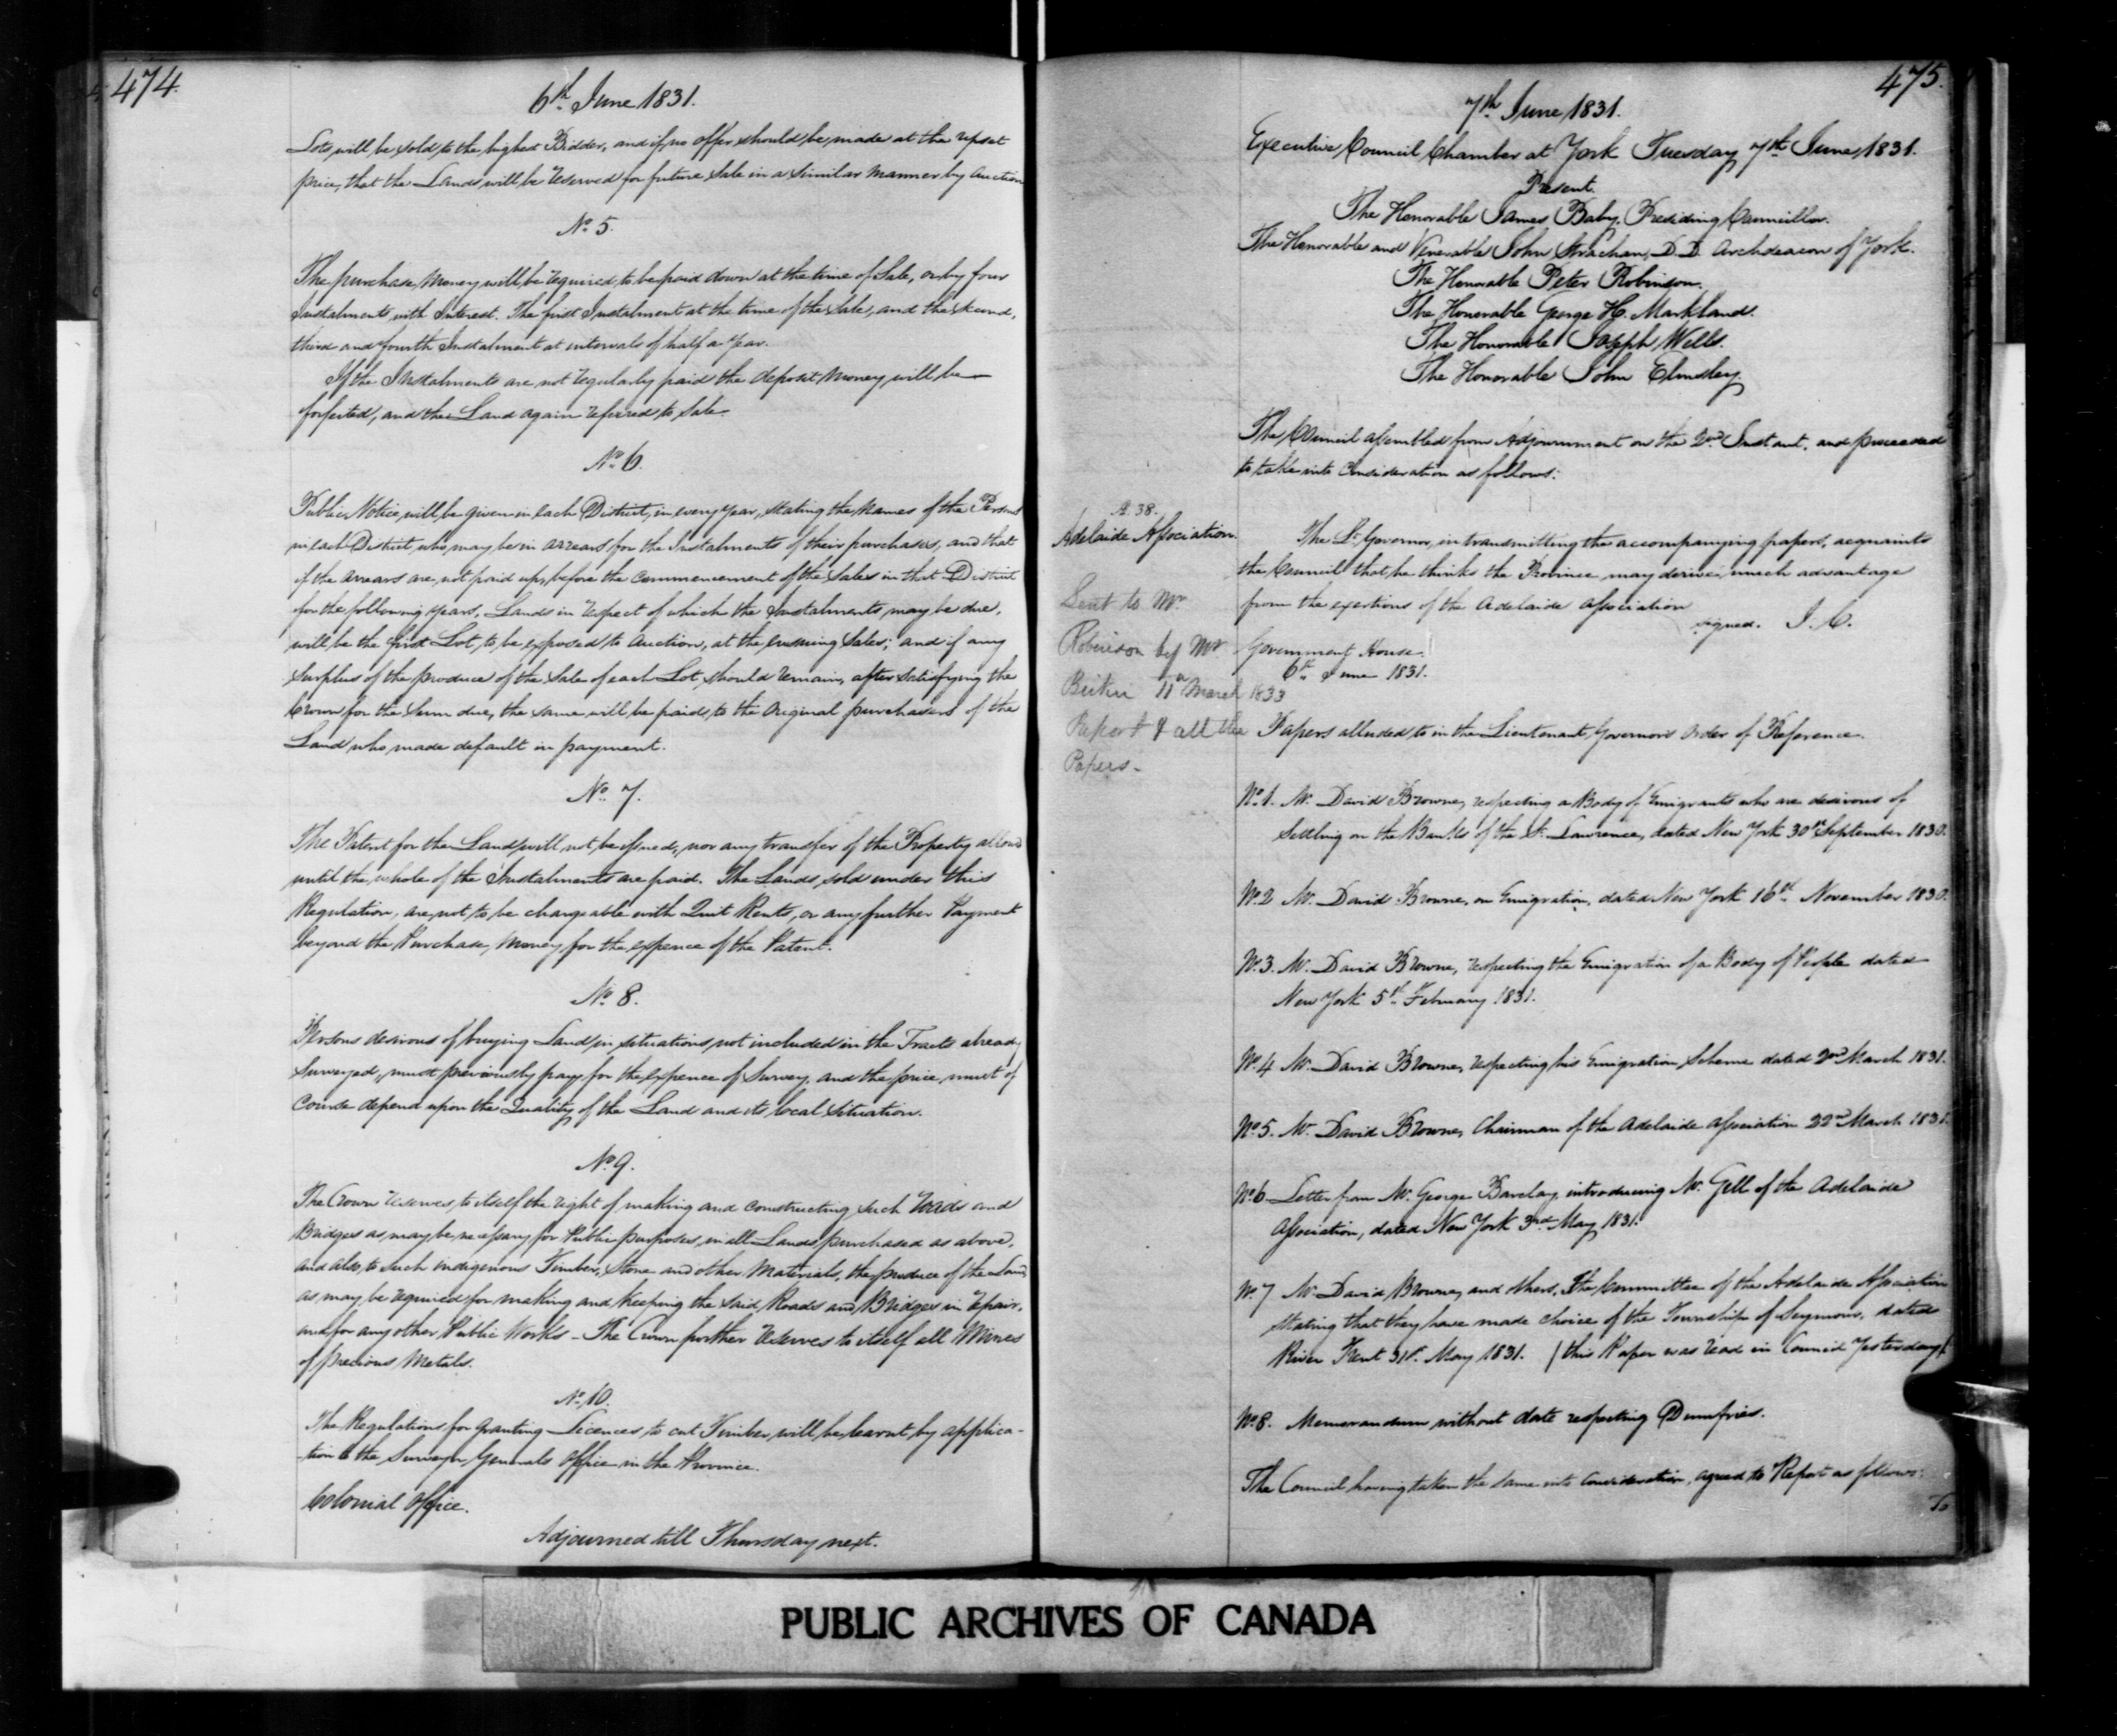 474.
6th June 1831.
Lots will be sold to the highest Bidder, and if no offer should be made at the upset
price, that the Lands will be reserved for future Sale in a similar manner by Auction
No. 5.
The purchase Money will be required to be paid down at the time of Sale, or by four
Instalments with Interest. The first Instalment at the time of the Sale, and the second,
third and fourth Instalment at intervals of half a year.
If the Instalments are not regularly paid the deposit Money will be
forfeited, and the Land again referred to Sale.
No. 6.
Public Notice will be given in each District, in every year, stating the names of the Persons
in each District who may be in arrears for the Instalments of their purchases, and that
if the arrears are not paid up, before the commencement of the Sales in that District
for the following years, Lands in respect of which the Instalments may be due,
will be the first Lot, to be exposed to Auction, at the ensuing Sales; and if any
Surplus of the produce of the Sale of each Lot, should remain, after satisfying the
Crown for the Sum due, the same will be paid to the Original purchasers of the
Land who made default in payment.
No. 7.
The Patent for the Land will not be issued, nor any transfer of the Property allowed
until the whole of the Instalments are paid. The Lands sold under this
Regulation, are not to be chargeable with Quit Rents, or any further Payment
beyond the Purchase Money for the expence of the Patent.
No. 8.
Persons desirous of buying Land in situations not included in the Tracts already
Surveyed, must previously pay for the expence of Survey, and the price must of
Course depend upon the Quality of the Land and its local situation.
No. 9.
The Crown reserves to itself the right of making and constructing such Roads and
Bridges as may be necessary for Public purposes, in all Lands purchased as above,
and also, to such indigenous Timber, Stone and other Materials, the produce of the Land
as may be required for making and keeping the said Roads and Bridges in repair,
and for any other Public Works - The Crown further reserves to itself all Mines
of precious Metals.
No. 10.
The Regulations for granting Licences to cut Timber, will be learnt by applica-
-tion to the Surveyor Generals Office in the Province.
Colonial Office.
Adjourned till Thursday next.
475.
7th June 1831.
Executive Council Chamber at York Tuesday 7th June 1831.
Present.
The Honorable James Baby, Presiding Councillor.
The Honorable and Venerable John Strachan, D.D. Archdeacon of York.
The Honorable Peter Robinson.
The Honorable George H. Markland.
The Honorable Joseph Wells.
The Honorable John Elmsley
The Council assembled from Adjournment on the 2nd Instant, and proceeded
to take into Consideration as follows:
A. 38.
Adelaide Association.
The Lt. Governor, in transmitting the accompanying papers, acquaints
the Council that he thinks the Province may derive much advantage
from the exertions of the Adelaide Association
signed. J. C.
Government House.
6th June 1831.
Sent to Mr
Robinson by Mr
11th March 1833
Report & all the
Papers -
Papers alluded to in the Lieutenant Governors Order of Reference.
No. 1. Mr. David Browne, respecting a Body of Emigrants who are desirous of
settling on the Banks of the St. Lawrence, dated New York 30th September 1830.
No. 2 Mr. David Browne, on Emigration, dated New York 16th November 1830.
No. 3. Mr. David Browne, respecting the Emigration of a Body of People dated
New York 5th February 1831.
No. 4 Mr. David Browne, respecting his Emigration Scheme dated 2nd March 1831.
No. 5. Mr. David Browne, Chairman of the Adelaide Association 22nd March 1831.
No. 6 Letter from Mr. George Barclay, introducing Mr. Gell of the Adelaide
Association, dated New York 3rd May 1831.
No. 7 Mr. David Browne, and others, the Committee of the Adelaide Association
stating that they have made choice of the Township of Seymour, dated
River Trent 31st. May 1831. (this Paper was read in Council Yesterday)
No. 8. Memorandum without date respecting Dumfries.
The Council having taken the same into Consideration, agreed to Report as follows:
To
PUBLIC ARCHIVES OF CANADA